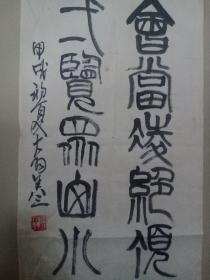 會當凌絕頂
一覽眾山小
甲戌初夏